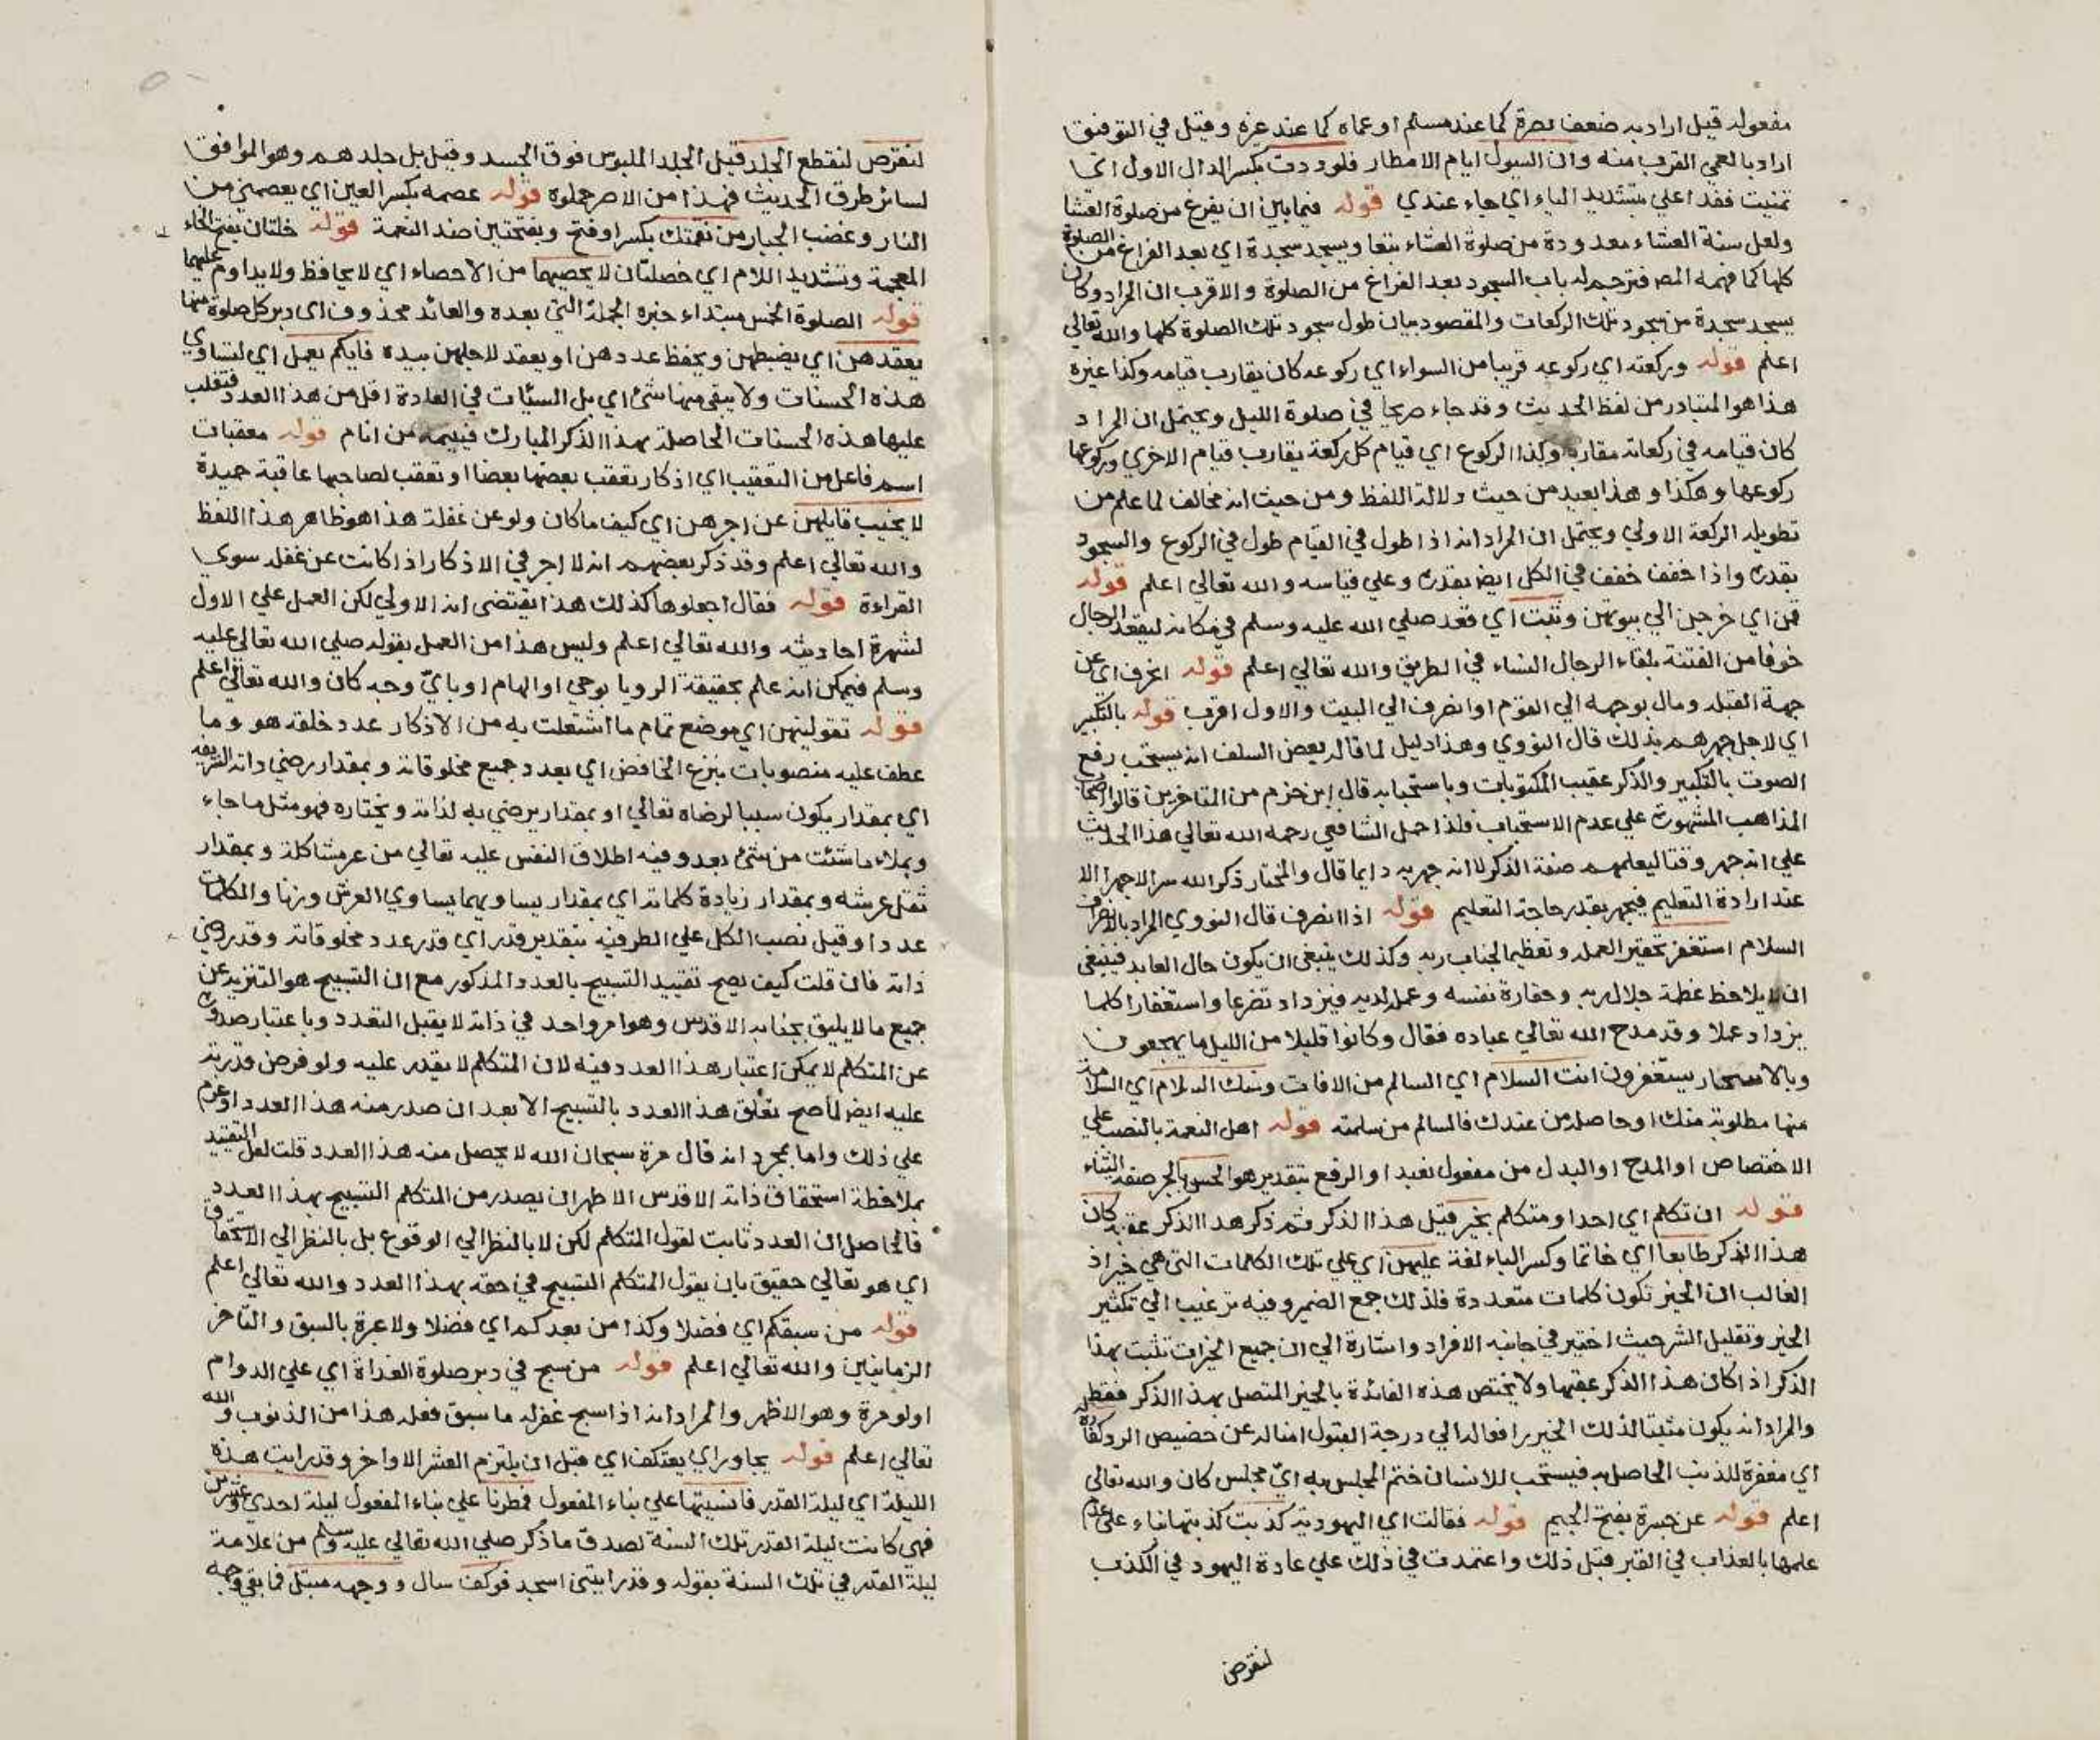 مفعوله قيل اراد به ضعف بصره كما عند مسلم او عماه كما عند غيره وقيل في التوفيق
اراد بالعمي القرب منه وان السيول ايام الامطار فلوددت بكسر الدال الاول اي
تمنيت فغدا علي بتشديد الياء اي جاء عندي قوله فيما بين ان يفرغ من صلوة العشا
ولعل سنة العشاء معدودة من صلوة العشاء تبعا ويسجد سجدة اي بعد الفراغ من الصلوة
كلها كما فهمه المص فترجم له باب السجود بعد الفراغ من الصلوة والاقرب ان المراد وكان
يسجد سجدة من سجود تلك الركعات والمقصود بيان طول سجود تلك الصلوة كلها والله تعالي
اعلم قوله وركعته اي ركوعه قريبا من السواء اي ركوعه كان يقارب قيامه وكذا غيره
هذا هو المتبادر من لفظ الحديث وقد جاء صريحا في صلوة الليل ويحتمل ان المراد
كان قيامه في ركعاته مقاربا وكذا الركوع اي قيام كل ركعة يقارب قيام الاخري وركوعها
ركوعها وهكذا وهذا بعيد من حيث دلالة اللفظ ومن حيث انه مخالف لما علم من
تطويله الركعة الاولي ويحتمل ان المراد انه اذا طول في القيام طول في الركوع والسجود
بقدره واذا خفف خفف في الكل ايض بقدره وعلي قياسه والله تعالي اعلم قوله
قمن اي خرجن الي بيوتهن وثبت اي قعد صلي الله عليه وسلم في مكانه ليقعد الرجال
خوفا من الفتنة بلقاء الرجال النساء في الطريق والله تعالي اعلم قوله انحرف اي عن
جهة القبلة ومال بوجهه الي القوم او انصرف الي البيت والاول اقرب قوله بالتكبير
اي لاجل جهرهم بذلك قال النووي وهذا دليل لما قاله بعض السلف انه يستحب رفع
الصوت بالتكبير والذكر عقيب المكتوبات وباستحبابه قال ابن حزم من المتاخرين قالوا اصحاب
المذاهب المشهورة علي عدم الاستحباب فلذا حمل الشافعي رحمه الله تعالي هذا الحديث
علي انه جهر وقتا ليعلمهم صفة الذكر لا انه جهر به دايما قال والمختار ذكر الله سرا لا جهرا الا
عند ارادة التعليم فيجهر بقدر حاجة التعليم قوله اذا انصرف قال النووي المراد بالانصراف
السلام استغفر تحقيرا لعمله وتعظيما لجناب ربه وكذلك ينبغي ان يكون حال العابد فينبغي
ان يلاحظ عظمة جلال ربه وحقارة نفسه وعمله لديه فيزداد تضرعا واستغفارا كلما
يزداد عملا وقد مدح الله تعالي عباده فقال وكانوا قليلا من الليل ما يهجعون
وبالاسحار يستغفرون انت السلام اي السالم من الافات ومنك السلام اي السلامة
منها مطلوبة منك او حاصلة من عندك فالسالم من سلمته قوله اهل النعمة بالنصب علي
الاختصاص او المدح او البدل من مفعول نعبد او الرفع بتقدير هو الحسن بالجر صفة الثناء
قوله ان تكلم اي احد او متكلم بخير قبل هذا الذكر ثم ذكر هذا الذكر عقبه كان
هذا الذكر طابعا اي خاتما وكسر الباء لغة عليهن اي علي تلك الكلمات التي هي خير اذ
الغالب ان الخير تكون كلمات متعددة فلذلك جمع الضمير وفيه ترغيب الي تكثير
الخير وتقليل الشر حيث اختير في جانبه الافراد واشارة الي ان جميع الخيرات تثبت بهذا
الذكر اذا كان هذا الذكر عقبها ولا تختص هذه الفائدة بالخير المتصل بهذا الذكر فقط
والمراد انه يكون مثبتا لذلك الخير رافعا له الي درجة القبول امنا له عن حضيض الرد كفارة له
اي مغفرة للذنب الحاصل به فيستحب للانسان ختم المجلس به اي مجلس كان والله تعالي
اعلم قوله عن جسرة بفتح الجيم قوله فقالت اي اليهودية كذبت كذبتها بناء علي عدم
علمها بالعذاب في القبر قبل ذلك واعتمدت في ذلك علي عادة اليهود في الكذب
لنقرض
لنقرض لنقطع الجلد قيل الجلد الملبوس فوق الجسد وقيل بل جلدهم وهو الموافق
لسائر طرق الحديث فهذا من الاصر حملوه قوله عصمه بكسر العين اي يعصمني من
النار وغضب الجبار من نقمتك بكسر او فتح وبفتحتين ضد النعمة قوله خلتان بفتح الخاء
المعجمة وتشديد اللام اي خصلتان لا يحصيهما من الاحصاء اي لا يحافظ ولا يداوم عليهما
قوله الصلوة الخمس مبتداء خبره الجملة التي بعده والعائد محذوف اي دبر كل صلوة منها
يعقدهن اي يضبطهن ويحفظ عددهن او يعقد لاجلهن بيده فايكم يعمل اي ليساوي
هذه الحسنات ولا يبقي منها شئ اي بل السيئات في العادة اقل من هذا العدد فتغلب
عليها هذه الحسنات الحاصلة بهذا الذكر المبارك فينيمه من انام قوله معقبات
اسم فاعل من التعقيب اي اذكار يعقب بعضها بعضا او تعقب لصاحبها عاقبة حميدة
لا يخيب قايلهن عن اجرهن اي كيف ما كان ولو عن غفلة هذا هو ظاهر هذا اللفظ
والله تعالي اعلم وقد ذكر بعضهم انه لا اجر في الاذكار اذا كانت عن غفله سوي
القراءة قوله فقال اجعلوها كذلك هذا يقتضي انه الاولي لكن العمل علي الاول
لشهرة احاديثه والله تعالي اعلم وليس هذا من العمل بقوله صلي الله تعالي عليه
وسلم فيمكن انه علم بحقيقة الرويا بوحي او الهام او باي وجه كان والله تعالي اعلم
قوله تقولينهن اي موضع تمام ما اشتغلت به من الاذكار عدد خلقه هو وما
عطف عليه منصوبات بنزع الخافض اي بعدد جميع مخلوقاته وبمقدار رضي ذاته الشريفه
اي بمقدار يكون سببا لرضاه تعالي او بمقدار يرضي به لذاته ويختاره فهو مثل ما جاء
وبملاء ما شئت من شئ بعد وفيه اطلاق النفس عليه تعالي من غير مشاكلة وبمقدار
ثقل عرشه وبمقدار زيادة كلماته اي بمقدار يساويهما يساوي العرش وزنا والكلمات
عددا وقيل نصب الكل علي الظرفية بتقدير قدر اي قدر عدد مخلوقاته وقدر رضي
ذاته فان قلت كيف يصح تقييد التسبيح بالعدد المذكور مع ان التسبيح هو التنزيه عن
جميع ما لا يليق بجنابه الاقدس وهو امر واحد في ذاته لا يقبل التعدد وباعتبار صدوره
عن المتكلم لا يمكن اعتبار هذا العدد فيه لان المتكلم لا يقدر عليه ولو فرض قدرته
عليه ايض لما صح تعلق هذا العدد بالتسبيح الا بعد ان صدر منه هذا العدد او عزم
علي ذلك واما بمجرد انه قال مرة سبحان الله لا يحصل منه هذا العدد قلت لعل التقييد
بملاحظة استحقاق ذاته الاقدس الاطهر ان يصدر من المتكلم التسبيح بهذا العدد
فالحاصل ان العدد ثابت لقول المتكلم لكن لا بالنظر الي الوقوع بل بالنظر الي الاستحقاق
اي هو تعالي حقيق بان يقول المتكلم التسبيح في حقه بهذا العدد والله تعالي اعلم
قوله من سبقكم اي فضلا وكذا من بعدكم اي فضلا ولا عبرة بالسبق والتاخر
الزمانيين والله تعالي اعلم قوله من سبح في دبر صلوة الغداة اي علي الدوام
اولو مرة وهو الاظهر والمراد انه اذا سبح غفر له ما سبق فعله هذا من الذنوب والله
تعالي اعلم قوله يجاور اي يعتكف اي قبل ان يلتزم العشر الاواخر وقد رايت هذه
الليلة اي ليلة القدر فانسيتها علي بناء المفعول فمطرنا علي بناء المفعول ليلة احدي وعشرين
فهي كانت ليلة القدر تلك السنة لصدق ما ذكر صلي الله تعالي عليه وسلم من علامة
ليلة القدر في تلك السنة بقوله وقد رايتني اسجد فوكف سال ووجهه مبتل فما بقي وجهه